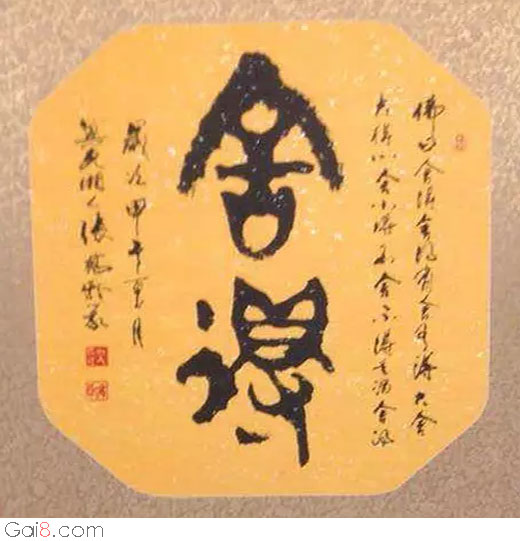 佛曰舍得舍得有舍得大舍
大得小舍小得不舍不得舍得
舍得
歲次甲午月
張
Gai8.com